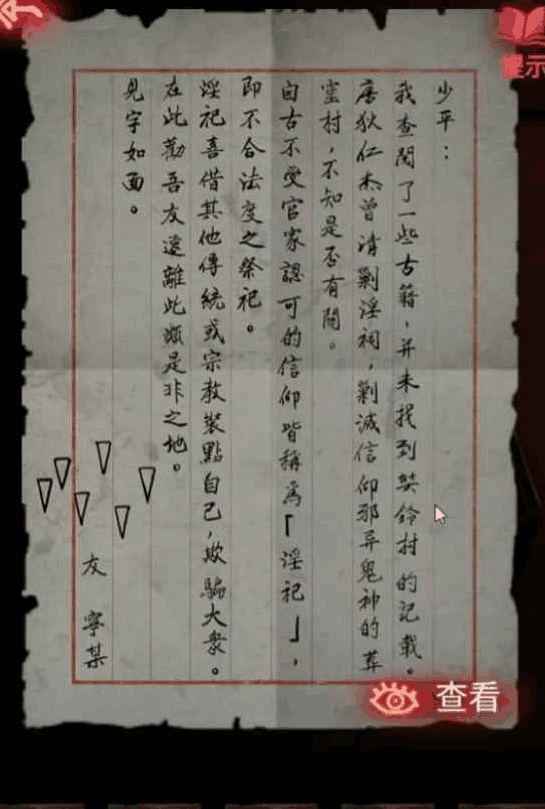 少平：
我查閱了一些古籍，并未找到奘铃村的記載。
唐狄仁杰曾清剿淫祠，剿滅信仰邪异鬼神的葬
靈村，不知是否有關。
自古不受官家認可的信仰皆稱爲「淫祀」，
即不合法度之祭祀。
淫祀喜借其他傳統或宗教裝點自己，欺騙大衆。
在此勸吾友遠離此類是非之地。
見字如面。
友 寧某
提示
查看